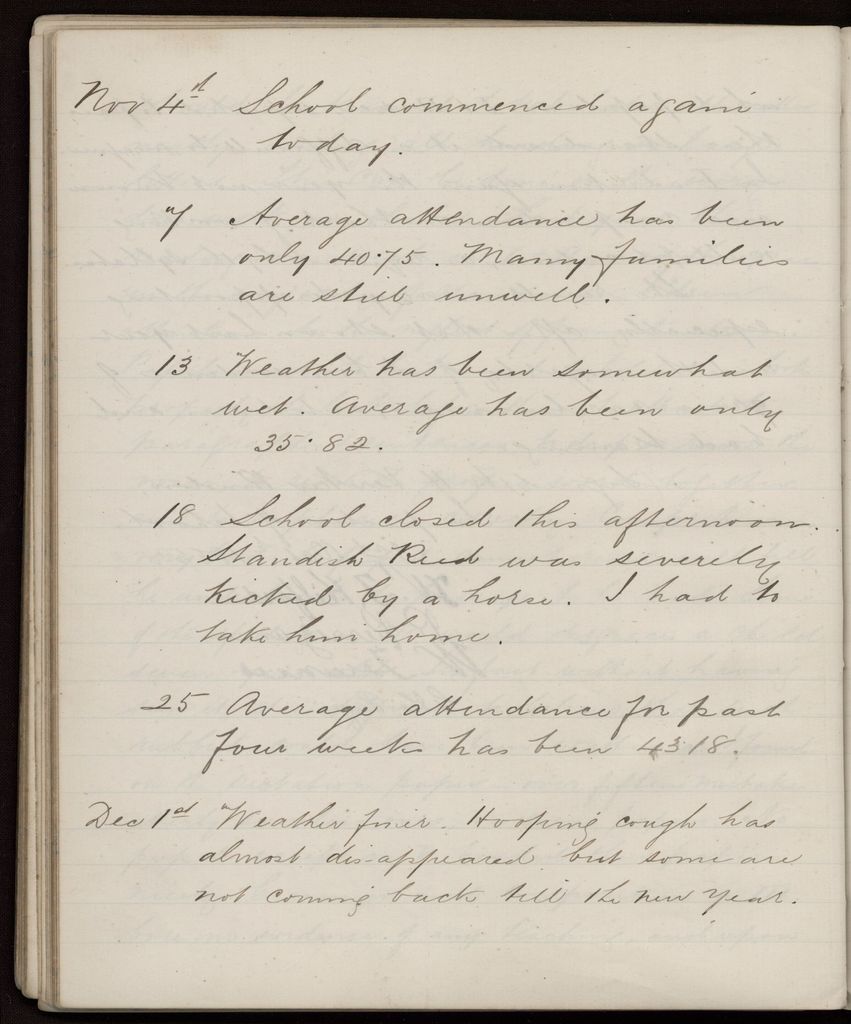 Nov 4th School commenced again
today.
7 Average attendance has been
only 40.75. Many families
are still unwell.
13 Weather has been somewhat
wet. Average has been only
35.82.
18 School closed this afternoon.
Standish Reed was severely
kicked by a horse. I had to
take him home.
25 Average attendance for past
four weeks has been 43.18.
Dec 1st Weather finer. Hooping cough has
almost dis-appeared but some are
not coming back till the new year.